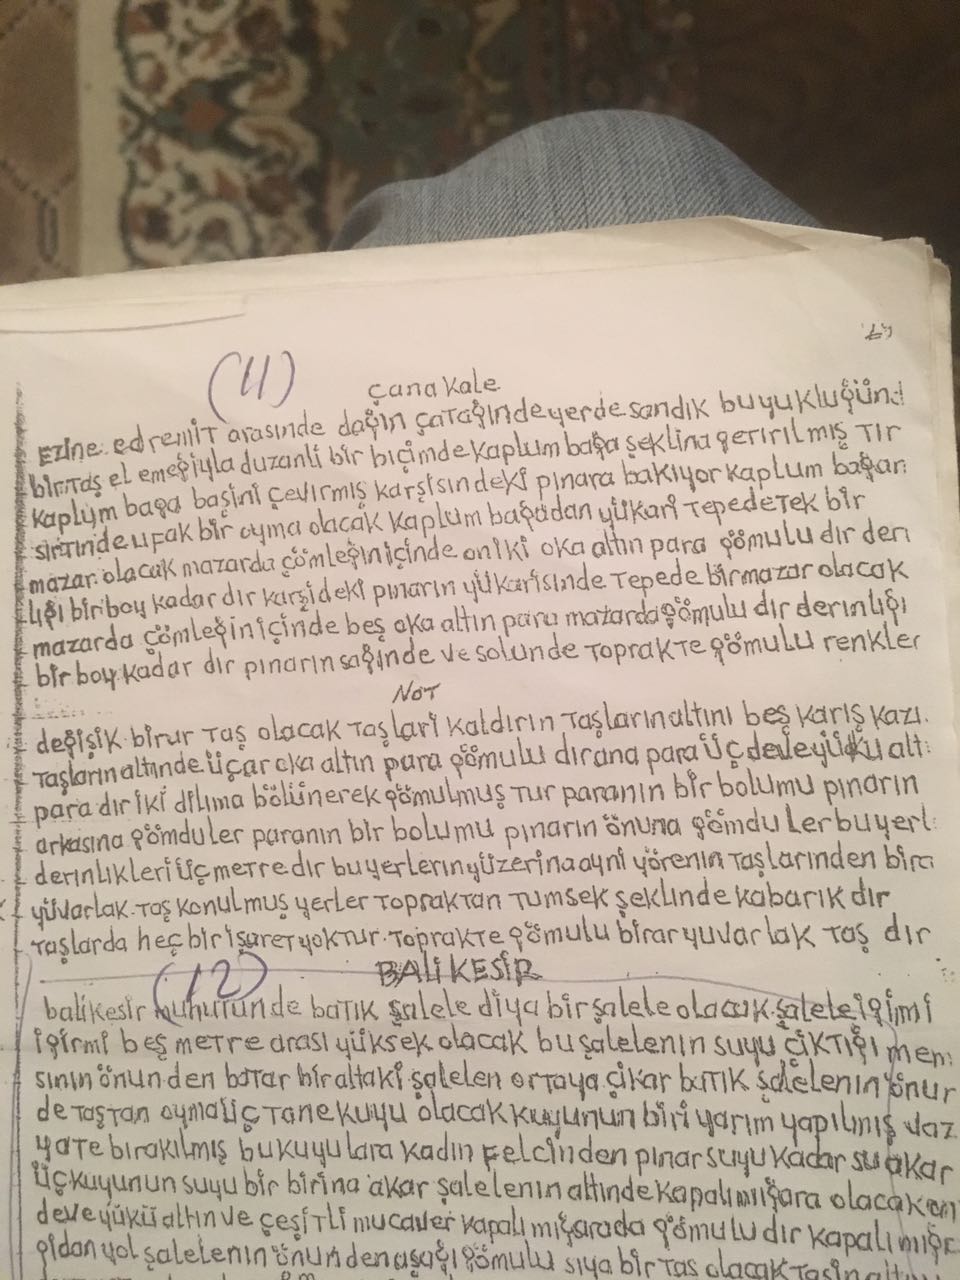 (11)
çanakkale
Ezine edremit arasinde dağin çatağinde yerde sandık buyukluğünd
bir taş el emeğiyla duzanli bir biçimde kaplum bağa şeklina getirilmiş tir
kaplum baga başini çevirmiş karşisindeki pinara bakıyor kaplum bağan
sirtinde ufak bir oyma olacak kaplum bağadan yükari tepede tek bir
mazar olacak mazarda çömleğin içinde on iki oka altin para gömulu dır deri
liği bir boy kadar dır karşideki pinarın yükarisinde tepede bir mazar olacak
mazarda çömleğin içinde beş oka altın para mazarda gömulu dır derinliği
bir boy kadar dır pınarın sağinde ve solunde toprakte gömulu renkler
Not
değişik birur taş olacak taşlari kaldırın taşların altını beş karış kazı.
taşların altinde üçar oka altın para gömulu dır ana para üç deve yükü alt
para dır iki dilima bölünerek gömulmuş tur paranın bir bolumu pınarın
arkasına gömduler paranın bir bolumu pınarın önuna gömduler bu yerl
derınlıkleri üç metre dır bu yerlerın yüzerina ayni yörenin taşlarından birar
yüvarlak taş konulmuş yerler topraktan tumsek şeklinde kabarık dır
taşlarda heç bir işaret yoktur. toprakte gömulu birar yuvarlak taş dır
(12)
BALiKESiR
balikesir huhutunde batık şalele diya bir şalele olacak şalele igimi
igirmi beş metre arası yüksek olacak bu şalelenın suyu çiktiği men
sının önunden batar bir altaki şalelen ortaya çikar batık şalelenın önur
de taştan oyma üç tane kuyu olacak kuyunun biri yarım yapılmış vaz
yate bırakılmış bu kuyulara kadın felcinden pinar suyu kadar su akar
üç kuyunun suyu bir birina akar şalelenın altinde kapalı mığara olacak on
deve yükü altın ve çeşitli mucaver kapalı mığarada gömulu dır kapalı mığr
gidan yol şalelenın önunden aşağı gömulu siya bir taş olacak taşin altı